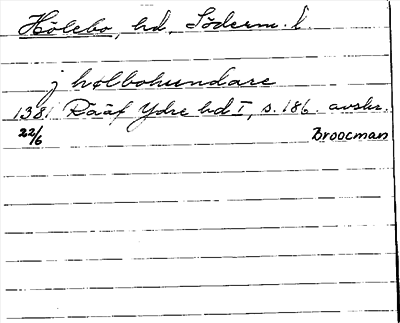 Hölebo, hd, Söderm. l.
j hølbohundare
1381 Rääf Ydre hd I, s. 186. avskr.
22/6 Broocman